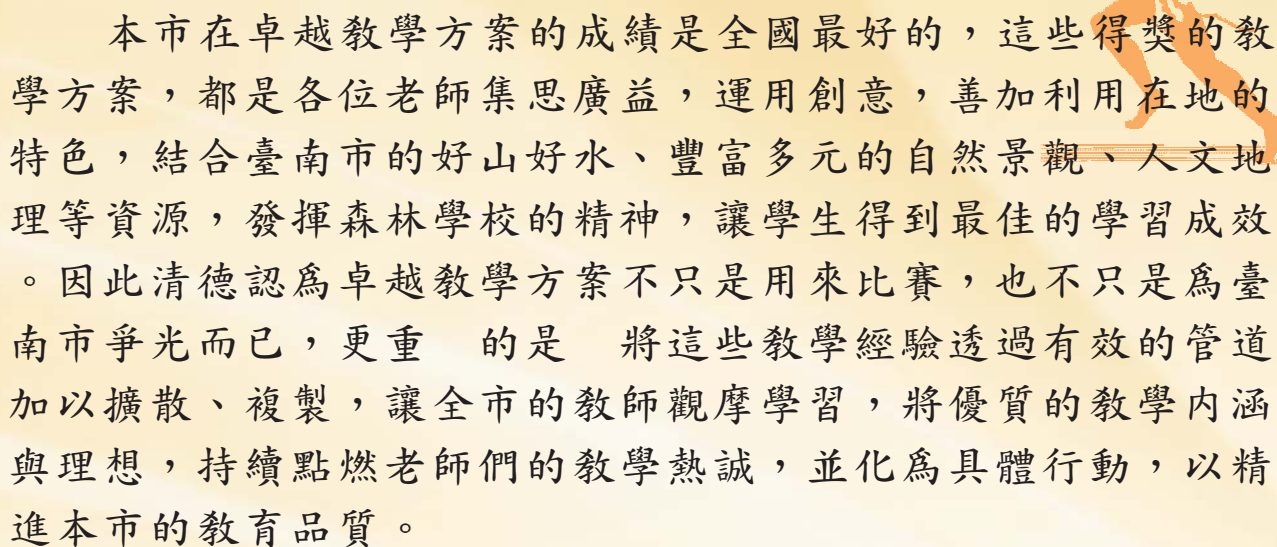 本市在卓越教學方案的成績是全國最好的，這些得獎的教
學方案，都是各位老師集思廣益，運用創意，善加利用在地的
特色，結合臺南市的好山好水、豐富多元的自然景觀、人文地
理等資源，發揮森林學校的精神，讓學生得到最佳的學習成效
。因此清德認為卓越教學方案不只是用來比賽，也不只是為臺
南市爭光而已，更重　的是　將這些教學經驗透過有效的管道
加以擴散、複製，讓全市的教師觀摩學習，將優質的教學內涵
與理想，持續點燃老師們的教學熱誠，並化為具體行動，以精
進本市的教育品質。